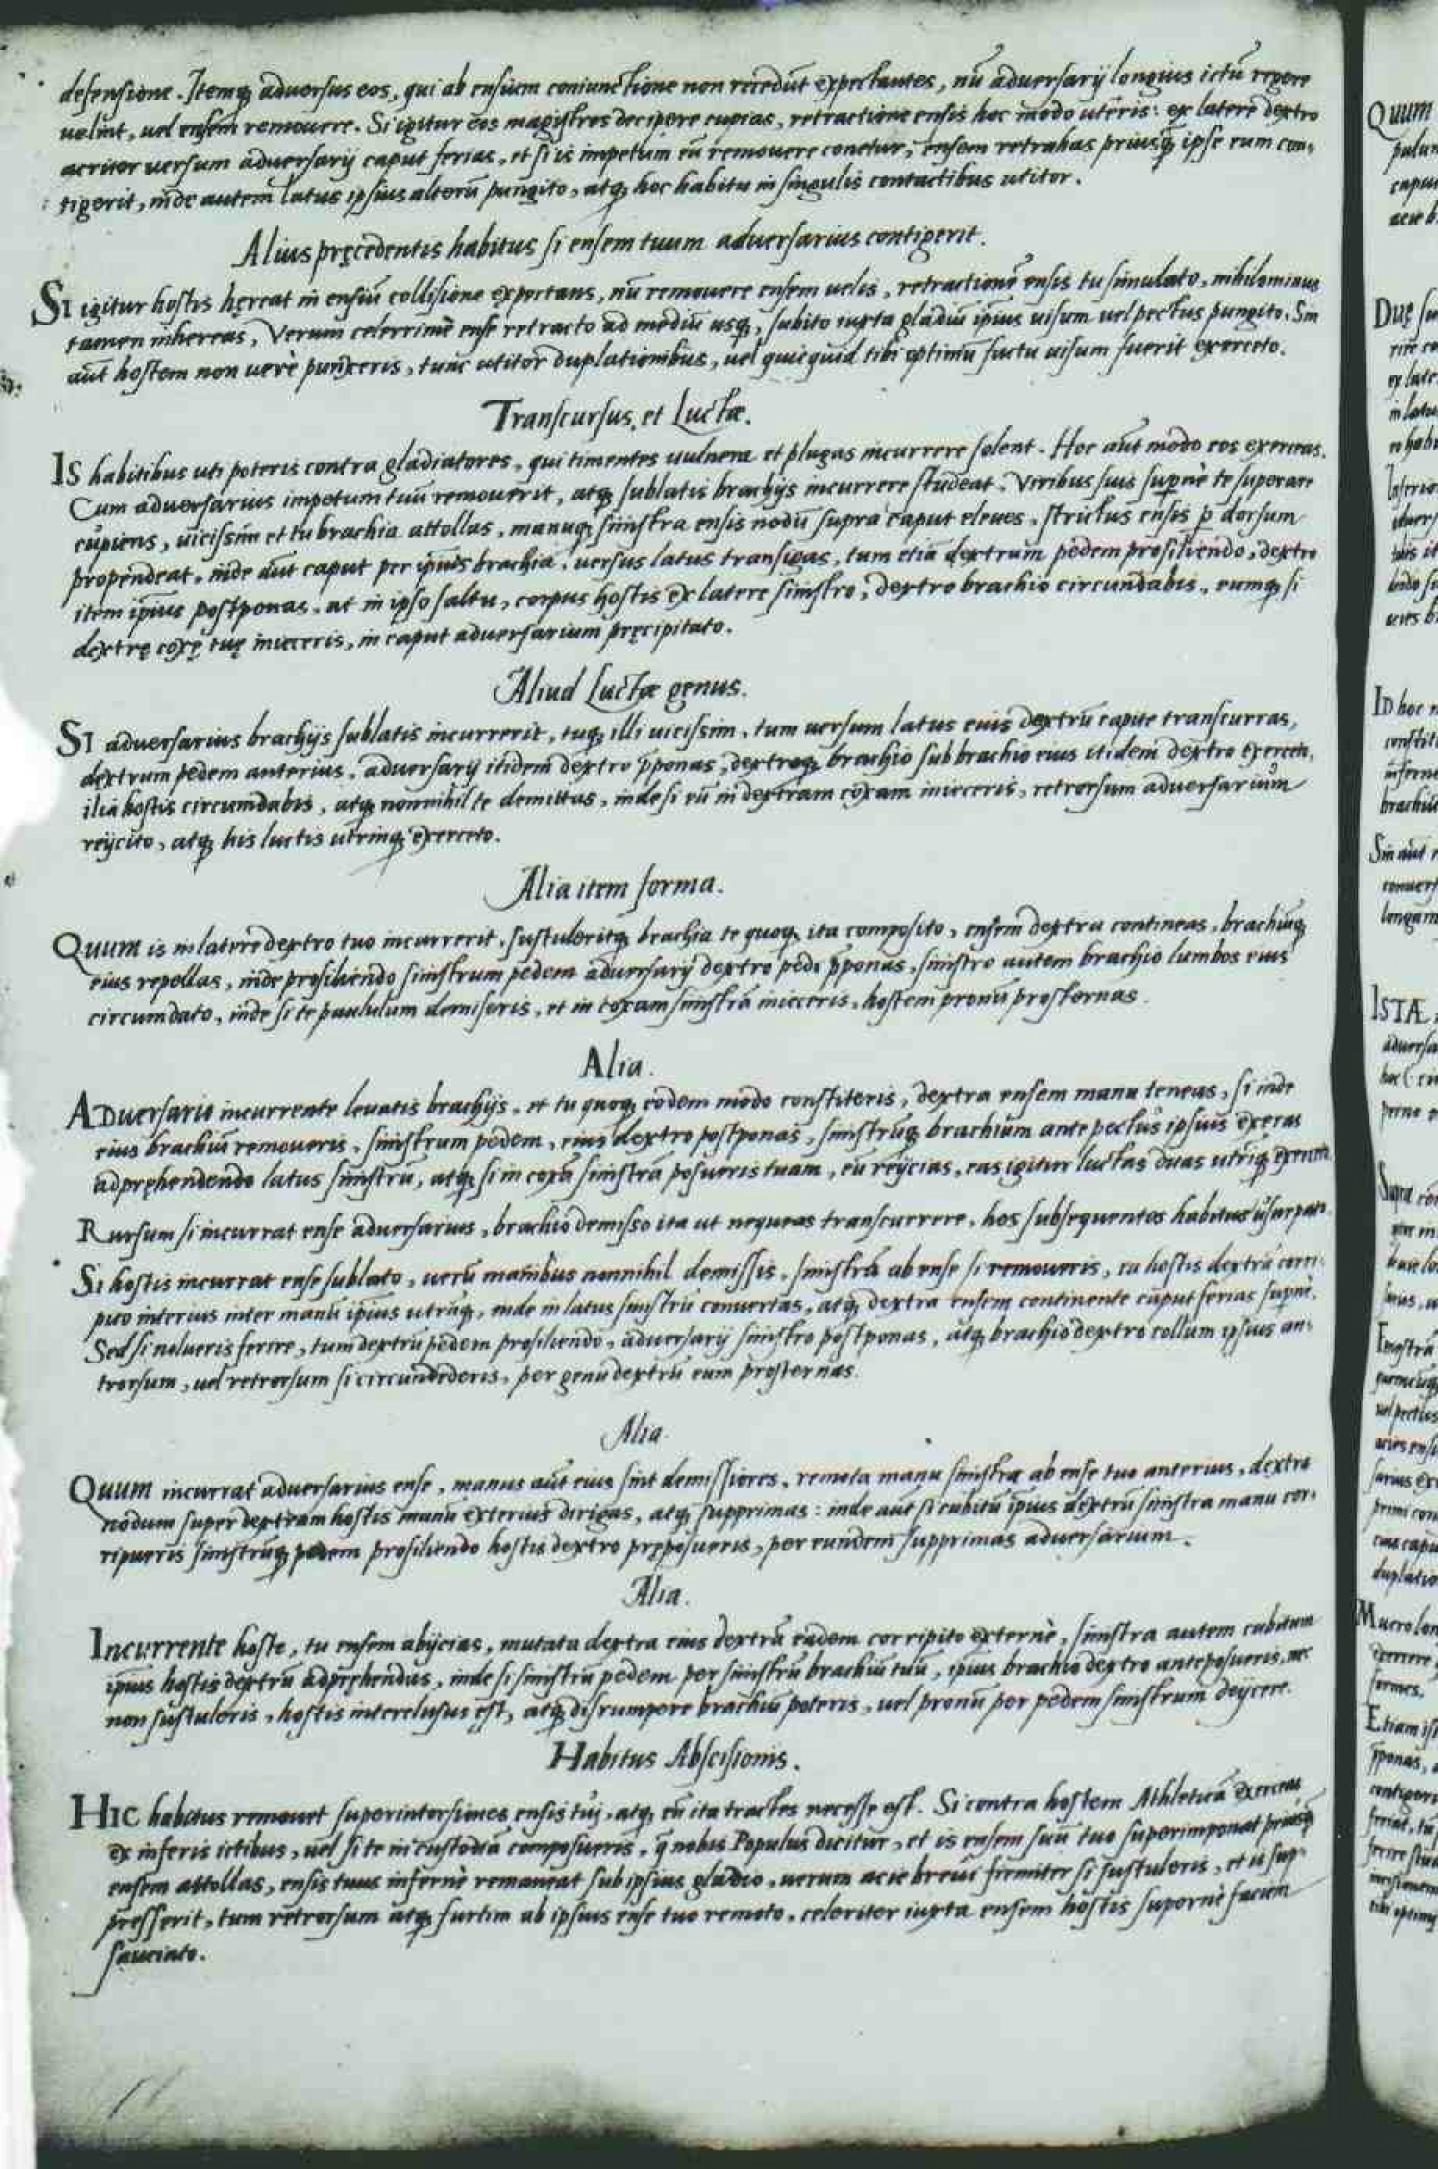 defensione. Itemq̃ aduersus eos, qui ab ensium coniunctione non recedūt expectantes, nū aduersarij longius ictū regere
uelint, uel ensem remouere. Si igitur eos magistros decipere cupias, retractione ensis hoc modo uteris: ex latere dextro
acriter uersum aduersarij caput ferias, et si is impetum eū remouere conetur, ensem retrahas priusq̃ ipse eum con,
tigerit, inde autem latus ipsius alterū pungito, atq̃ hoc habitu in singulis contactibus utitor.
Alius pręcedentis habitus si ensem tuum aduersarius contigerit.
SI igitur hostis hęreat in ensiū collisione expectans, nū remouere ensem uelis, retractionē ensis tu simulato, nihilominus
tamen inhereas, Verum celerrimè ense retracto ad mediū usq̃, subito iuxta gladiū ip̄ius uisum uel pectus pungito. Sin
aūt hostem non uerè punxeris, tunc utitor duplationibus, uel quicquid tibi optimū factu uisum fuerit exerceto.
Transcursus, et Luctæ.
IS habitibus uti poteris contra gladiatores, qui timentes uulnera et plagas incurrere solent. Hoc aūt modo eos exerceas.
Cum aduersarius impetum tuū remouerit, atq̃ sublatis brachijs incurrere studeat. Viribus suis supernè te superare
cupiens, uicissim et tu brachia attollas, manuq̃ sinistra ensis nodū supra caput eleues, strictus ensis p̱ dorsum
propendeat, inde aūt caput per ip̄ius brachia, uersus latus transigas, tum etiā dextrum pedem prosiliendo, dextro
item ip̄ius postponas, at in ipso saltu, corpus hostis ex latere sinistro, dextro brachio circundabis, eumq̃ si
dextrę coxę tuę inieceris, in caput aduersarium pręcipitato.
Aliud Luctæ genus.
SI aduersarius brachijs sublatis incurrerit, tuq̃ illi uicissim, tum uersum latus eius dextrū capite transcurras,
dextrum pedem anterius, aduersarij itidem dextro p̄ponas, dextroq̃ brachio sub brachio eius itidem dextro exerto,
ilia hostis circumdabis, atq̃ nonnihil te demittas, inde si eū in dextram coxam inieceris, retrorsum aduersarium
reijcito, atq̃ his luctis utrinq̃ exerceto.
Alia item forma.
QUUM is in latere dextro tuo incurrerit, sustuleritq̃ brachia te quoq̃ ita composito, ensem dextra contineas, brachiūq̃
eius repellas, inde prosiliendo sinistrum pedem aduersarij dextro pedi p̄ponas, sinistro autem brachio lumbos eius
circumdato, inde si te paululum demiseris, et in coxam sinistrā inieceris, hostem pronū prosternas.
Alia.
ADuersario incurrente leuatis brachijs, et tu quoq̃ eodem modo constiteris, dextra ensem manu teneas, si inde
eius brachiū remoueris, sinistrum pedem, eius dextro postponas, sinistrūq̃ brachium ante pectus ipsius exeras
adpręhendendo latus sinistrū, atq̃ si in coxā sinistrā posueris tuam, eū reijcias, eas igitur luctas duas utriq̃
Rursum si incurrat ense aduersarius, brachio demisso ita ut nequeas transcurrere, hos subsequentes habitus usurpato.
Si hostis incurrat ense sublato, uerū manibus nonnihil demissis, sinistrā ab ense si remoueris, ea hostis dextrā corri-
pito interius inter manū ip̄ius utrāq̃, inde in latus sinistrū conuertas, atq̃ dextra ensem continente caput ferias supernè.
Sed si nolueris ferire, tum dextrū pedem prosiliendo, aduersarij sinistro postponas, atq̃ brachio dextro collum ipsius an-
trorsum, uel retrorsum si circundederis, per genu dextrū eum prosternas.
Alia.
QUUM incurrat aduersarius ense, manus aūt eius sint demissiores, remota manu sinistra ab ense tuo anterius, dextra
nodum super dextram hostis manū exterius dirigas, atq̃ supprimas: inde aūt si cubitū ip̄ius dextrū sinistra manu cor-
ripueris sinistrūq̃ pedem prosiliendo hostis dextro pręposueris, per eundem supprimas aduersarium.
Alia.
Incurrente hoste, tu ensem abijcias, mutata dextra eius dextrā eadem corripito externè, sinistra autem cubitum
ip̄ius hostis dextrū adpręhendas, inde si sinistrū pedem per sinistrū brachiū tuū, ip̄ius brachio dextro anteposueris, ac
non sustuleris, hostis interclusus est, atq̃ disrumpere brachiū poteris, uel pronū per pedem sinistrum deijcere.
Habitus Abscisionis.
HIC habitus remouet superintorsiones ensis tui, atq̃ eū ita tractes necesse est. Si contra hostem Athleticā exerceas
ex inferis ictibus, uel si te in custodiā composueris, q̃ nobis Populus dicitur, et is ensem suū tuo superimponat priusq̃
ensem attollas, ensis tuus infernè remaneat sub ipsius gladio, uerum acie breui firmiter si sustuleris, et is sup-
presserit, tum retrorsum atq̃ furtim ab ipsius ense tuo remoto, celeriter iuxta ensem hostis supernè faciem
sauciato.